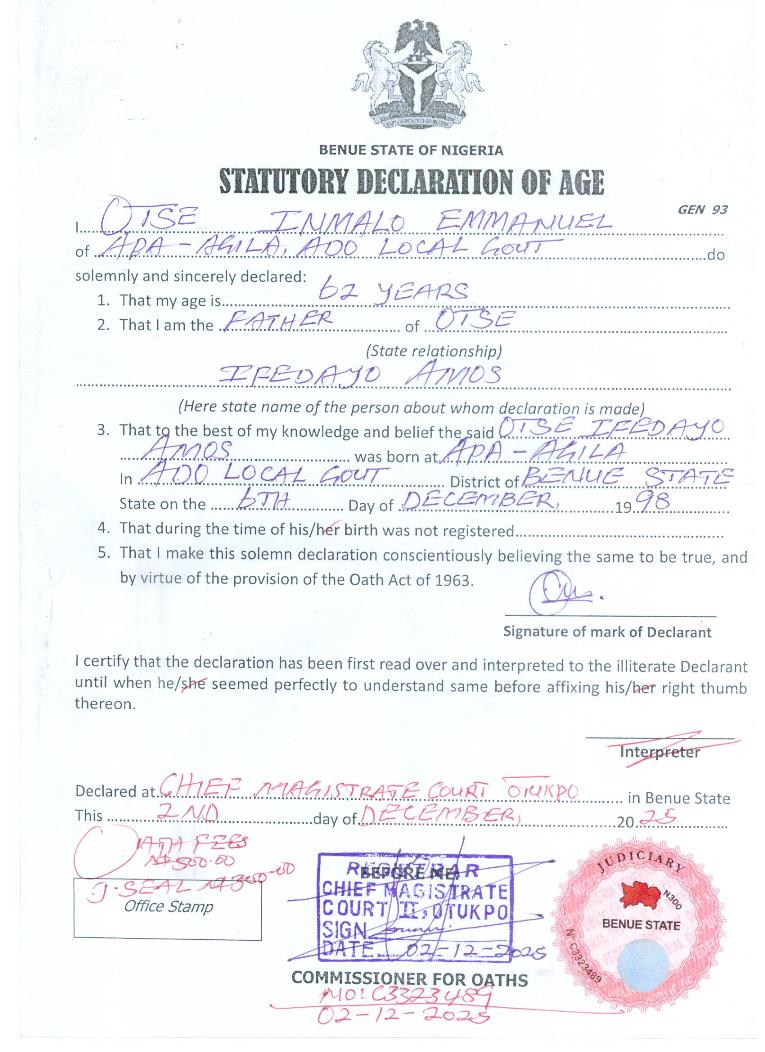 BENUE STATE OF NIGERIA
STATUTORY DECLARATION OF AGE
GEN 93
I OTSE INMALO EMMANUEL
of APA - AGILA, ADO LOCAL GOVT do
solemnly and sincerely declared:
1. That my age is 62 YEARS
2. That I am the FATHER of OTSE
(State relationship)
IFEDAYO AMOS
(Here state name of the person about whom declaration is made)
3. That to the best of my knowledge and belief the said OTSE IFEDAYO
AMOS was born at APA - AGILA
In ADO LOCAL GOVT District of BENUE STATE
State on the 6TH Day of DECEMBER, 1998
4. That during the time of his/her birth was not registered
5. That I make this solemn declaration conscientiously believing the same to be true, and
by virtue of the provision of the Oath Act of 1963.
Signature of mark of Declarant
I certify that the declaration has been first read over and interpreted to the illiterate Declarant
until when he/she seemed perfectly to understand same before affixing his/her right thumb
thereon.
Interpreter
Declared at CHIEF MAGISTRATE COURT OTUKPO in Benue State
This 2ND day of DECEMBER, 2025
OATH FEES
₦500-00
J-SEAL ₦300-00
Office Stamp
BEFORE ME
REGISTRAR
CHIEF MAGISTRATE
COURT II, OTUKPO
SIGN
DATE 02-12-2025
JUDICIARY
N300
BENUE STATE
Nº C3323489
COMMISSIONER FOR OATHS
NO: C3323489
02-12-2025